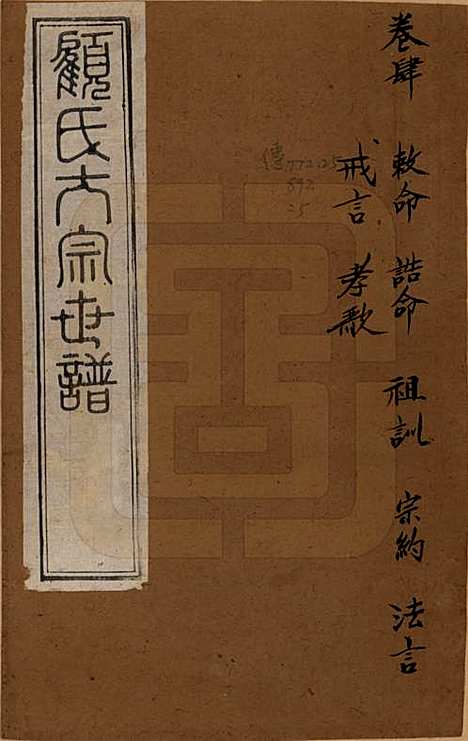 卷肆 敕命 誥命 祖訓 宗約 法言
戒言 孝歌
顧氏大宗世譜